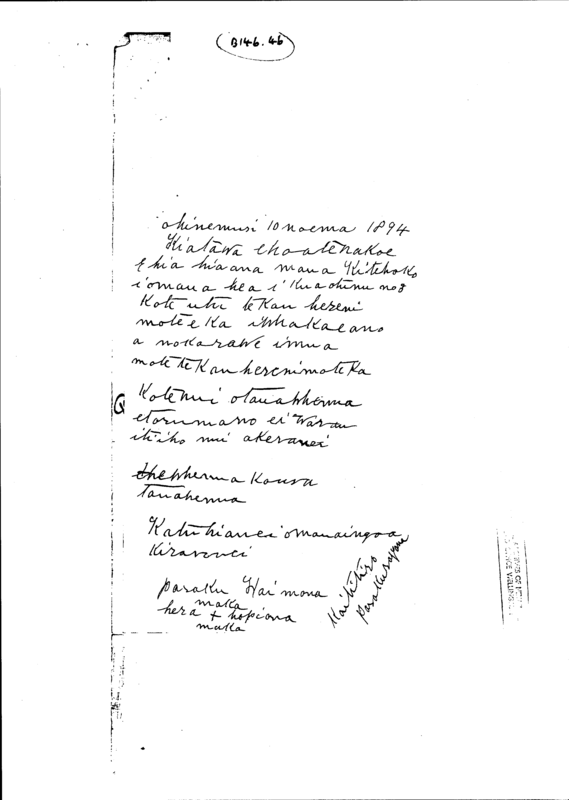 B146.46
ohinemusi 10 noema 1894
Kiatawa ehoatenakoe
E hia hia ana maua Kitehoko
i omaua hea i Kuaohinu no 3
Kote utu te Kau hereni
mote eKa i whakaeano
a nokarawe imua
mote te Kau herenimoteKa
Kotenui otauawhenua
etorumano ei warau
itiiho nui akeranei
whenua Koura
Tauahenua
Katuhianei omauaingoa
Kiraronei
paraku Hai mona
maka
hera + hopiona
maka
Kaititiro